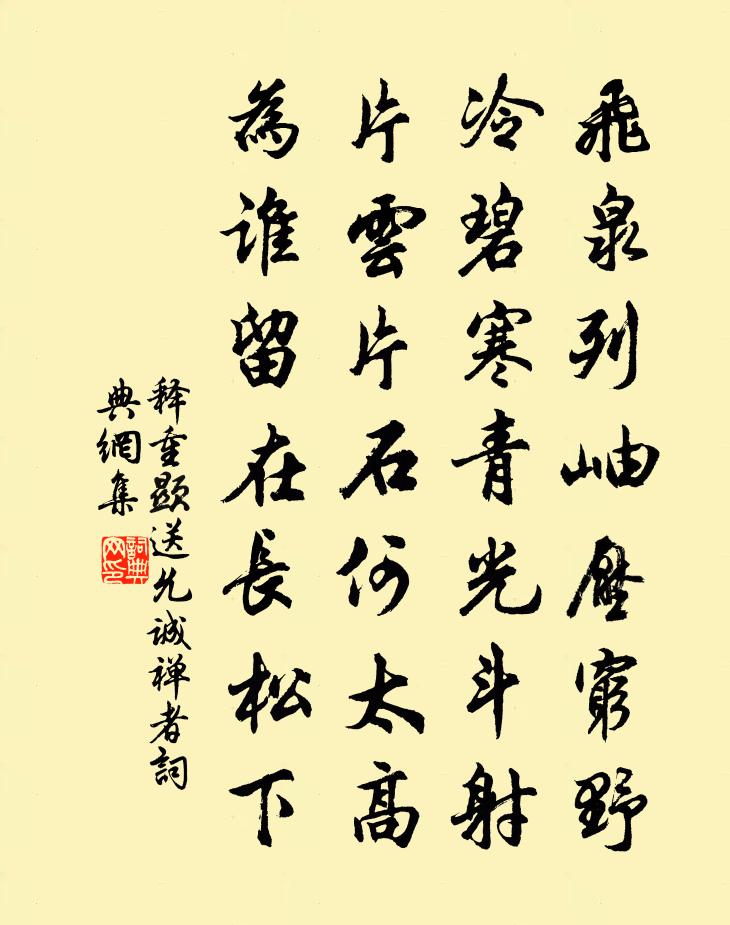 飛泉列岫壓窮野
冷碧寒青光斗射
片雲片石何太高
為誰留在長松下
释重顯送允诚禅者詞
典網集
詞典
网印